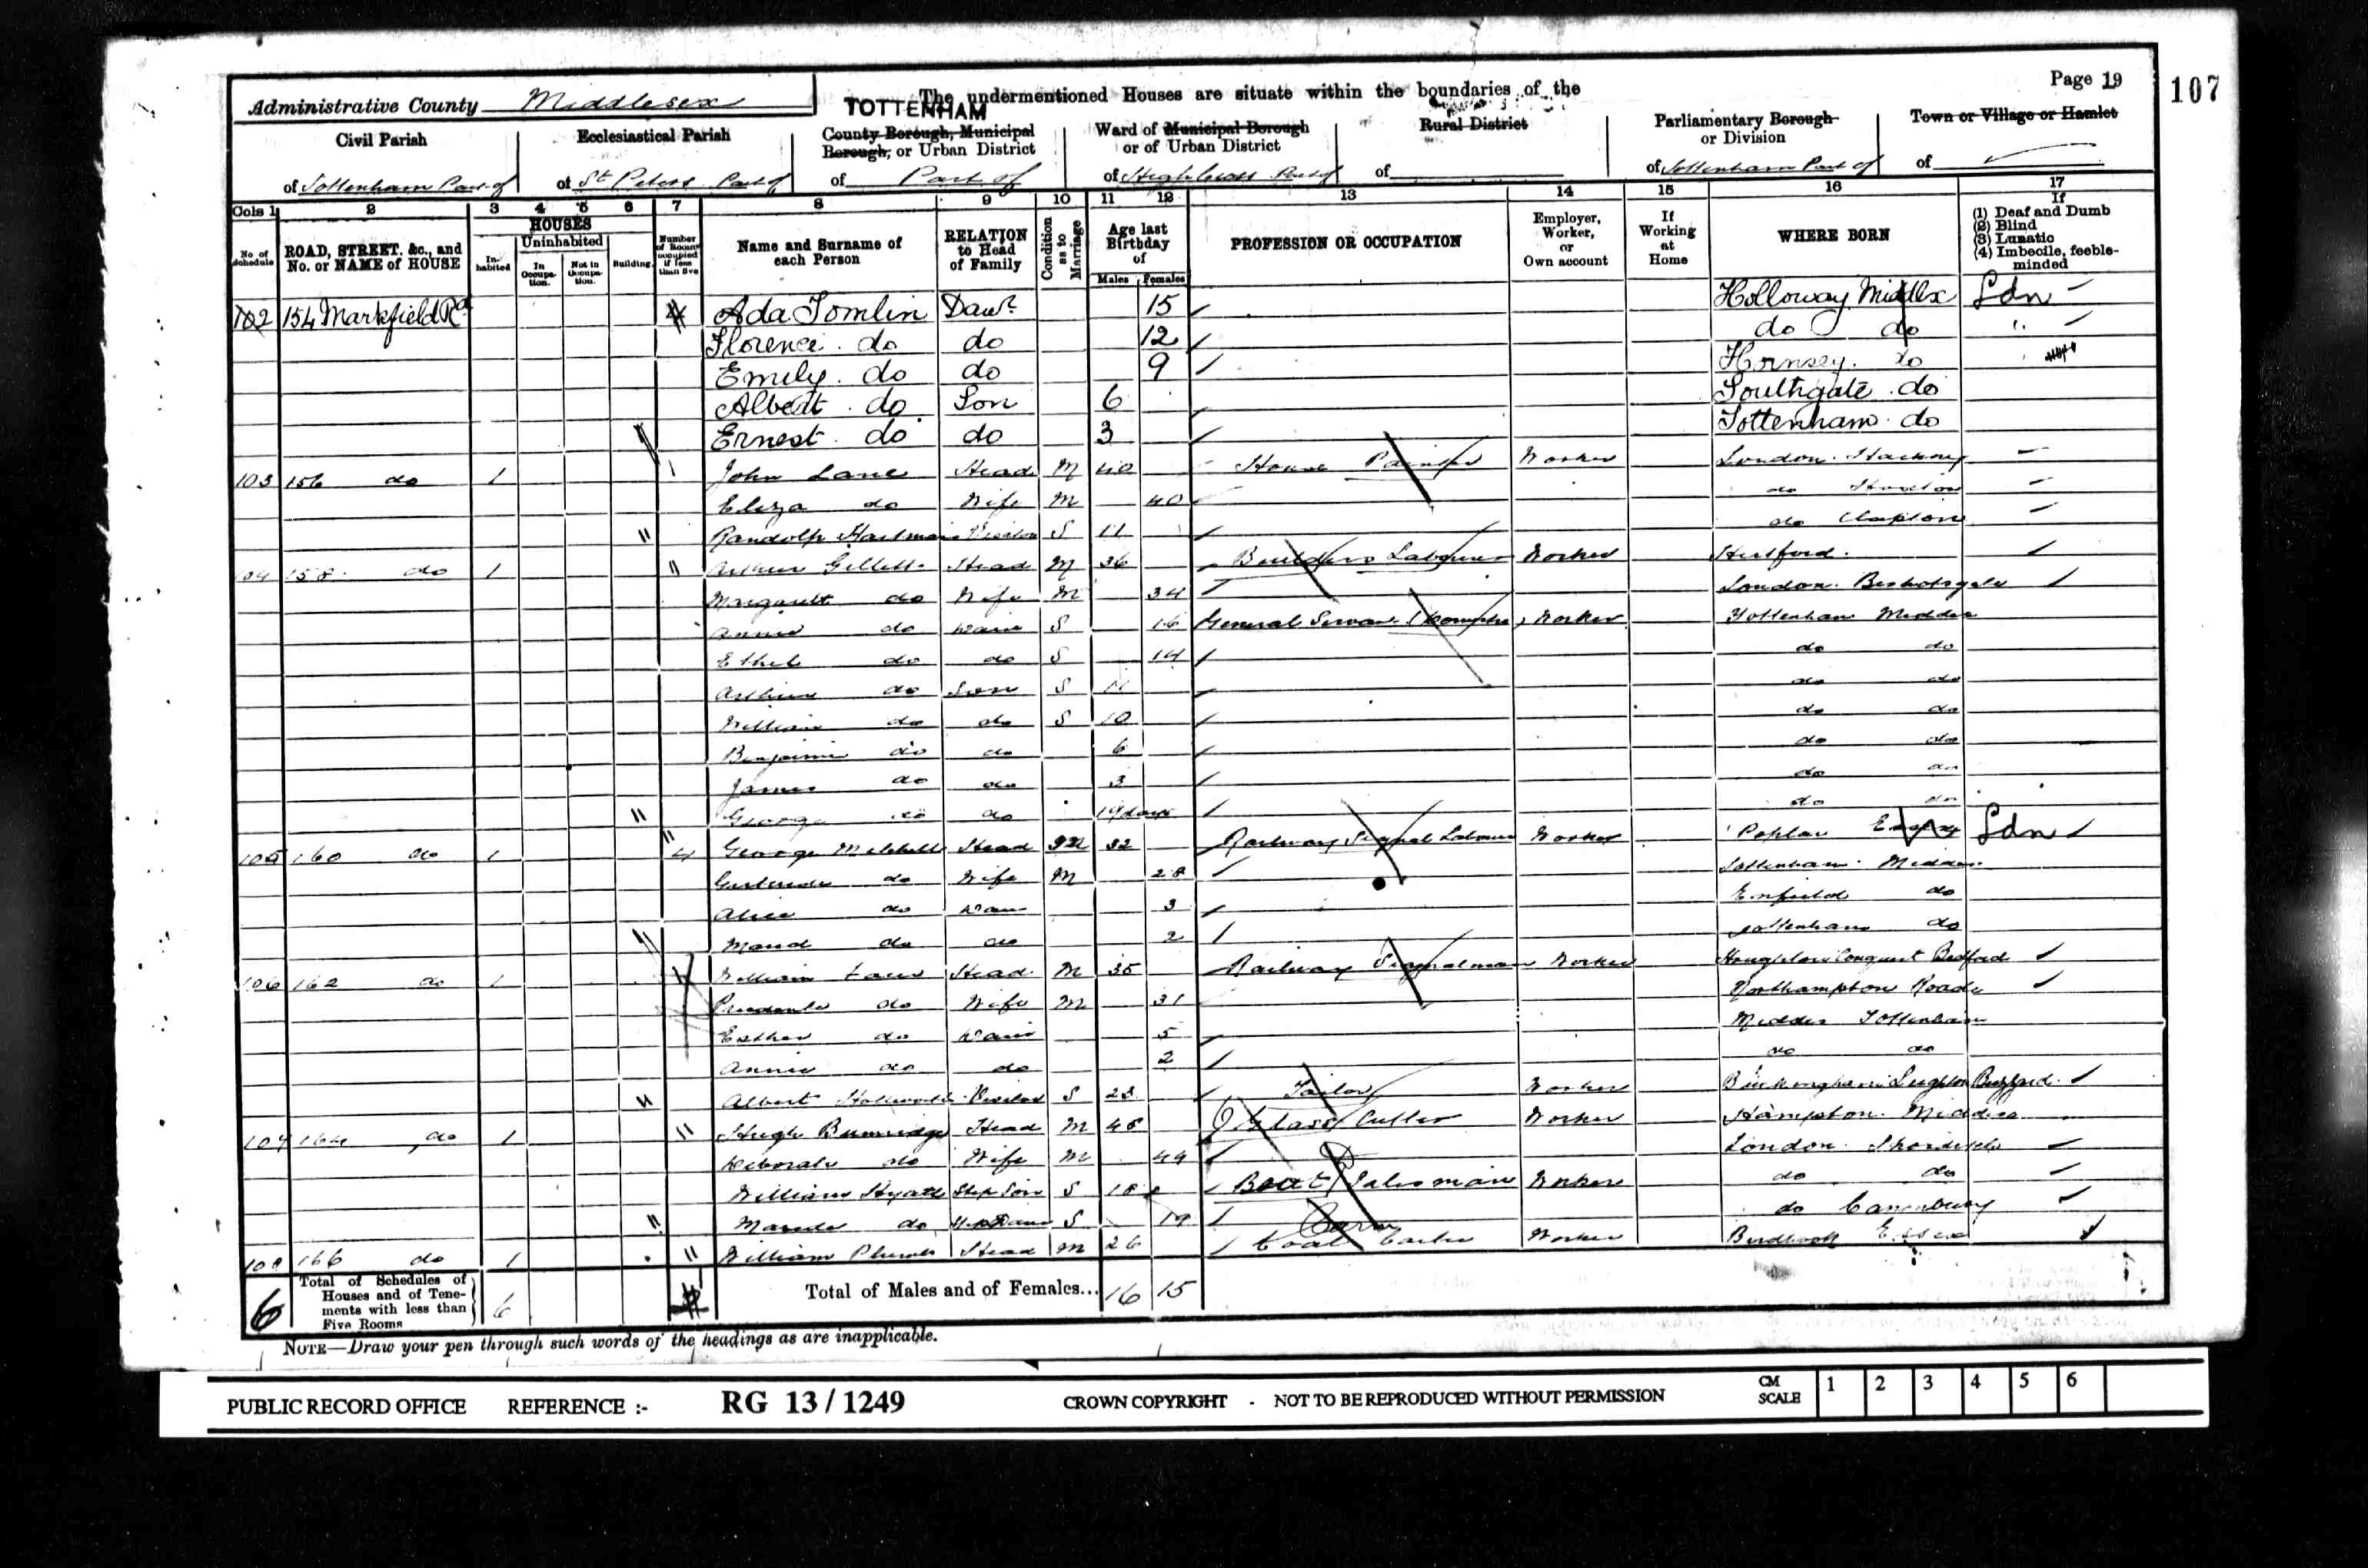 Page 19
107
Administrative County Middlesex
TOTTENHAM
The undermentioned Houses are situate within the boundaries of the
Civil Parish
of Tottenham Part of
Ecclesiastical Parish
of St Peters Part of
County Borough, Municipal Borough, or Urban District
of Part of
Ward of Municipal Borough or of Urban District
of High Cross Part of
Rural District
of
Parliamentary Borough or Division
of Tottenham Part of
Town or Village or Hamlet
of
Cols 1 2 3 4 5 6 7 8 9 10 11 12 13 14 15 16 17
No. of Schedule
ROAD, STREET, &c., and No. or NAME of HOUSE
HOUSES
Inhabited
Uninhabited
In Occupation.
Not in Occupation.
Building.
Number of Rooms occupied if less than five
Name and Surname of each Person
RELATION to Head of Family
Condition as to Marriage
Age last Birthday of
Males Females
PROFESSION OR OCCUPATION
Employer, Worker, or Own account
If Working at Home
WHERE BORN
If
(1) Deaf and Dumb
(2) Blind
(3) Lunatic
(4) Imbecile, feeble-minded
102 154 Markfield Rd Ada Tomlin Daur 15 Holloway Middlx Ldn
Florence do do 12 do do "
Emily do do 9 Hornsey do
Albert do Son 6 Southgate do
Ernest do do 3 Tottenham do
103 156 do 1 John Lane Head M 40 House Painter Worker London Hackney
Eliza do Wife M 40 do Hoxton
Randolph Visitor S 11 do Clapton
104 158 do 1 " Arthur Gillett Head M 36 Builders Labourer Worker Hertford
Margarett do Wife M 34 London Bishopsgate
Annie do Daur S 16 General Servant Worker Tottenham Middex
Ethel do do S 14 do do
Arthur do Son S 11 do do
William do do S 10 do do
Benjamin do do 6 do do
James do do 3 do do
George do do 19 days do do
105 160 do 1 4 George Mitchell Head M 32 Railway Signal Labourer Worker Poplar Essex Ldn
Gertrude do Wife M 28 Tottenham Middex
Alice do Daur 3 Enfield do
Maud do do 2 Tottenham do
106 162 do 1 4 William Head M 35 Railway Signalman Worker Houghton Conquest Bedford
do Wife M 31 Northampton Roade
Esther do Daur 5 Middex Tottenham
Annie do do 2 do do
Albert Visitor S 23 Tailor Worker Buckingham Leighton Buzzard
107 164 do 1 " Hugh Head M 48 Glass Cutter Worker Hampton Middlesex
Deborah do Wife M 49 London Shoreditch
William Hyatt Step Son S 18 Boot Salesman Worker do do
Maude do Step Daur S 19 do Canonbury
108 166 do 1 " William Plumb Head M 26 Coal Carter Corn Worker Birdbrook Essex
6 Total of Schedules of Houses and of Tenements with less than Five Rooms 6
Total of Males and of Females... 16 15
NOTE—Draw your pen through such words of the headings as are inapplicable.
PUBLIC RECORD OFFICE REFERENCE :- RG 13 / 1249 CROWN COPYRIGHT - NOT TO BE REPRODUCED WITHOUT PERMISSION CM SCALE 1 2 3 4 5 6